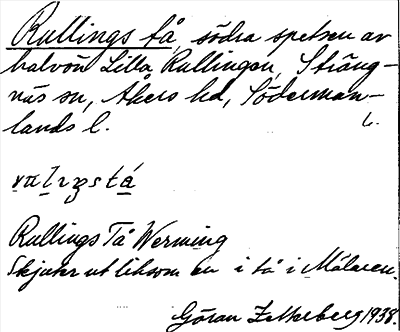 Rullings tå, södra spetsen av
halvön Lilla Rullingen, Sträng-
näs sn, Åkers hd, Söderman-
lands l.
Rullings Tå Werning
Skjuter ut liksom en i tå i Mälaren.
Göran 1938.